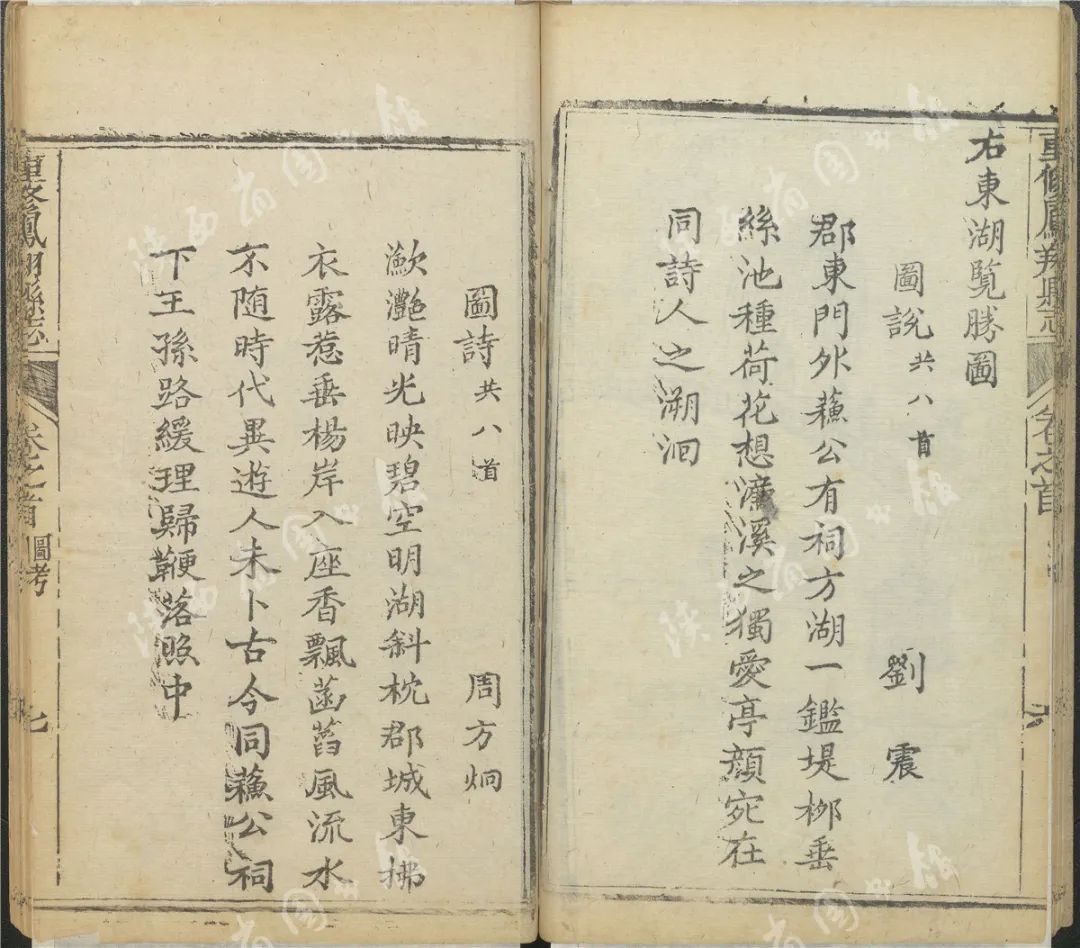 重修鳳翔縣志
卷之首
右東湖覽勝圖
圖說共八首 劉震
郡東門外蘓公有祠方湖一鑑堤栁垂
絲池種荷花想濂溪之獨愛亭顏宛在
同詩人之溯洄
圖詩共八首 周方炯
瀲灧晴光映碧空明湖斜枕郡城東拂
衣露惹垂楊岸入座香飄菡萏風流水
不随時代異遊人未卜古今同蘓公祠
下王孫路緩理歸鞭落照中
重修鳳翔縣志
卷之首 圖考
七
陝西省圖書館